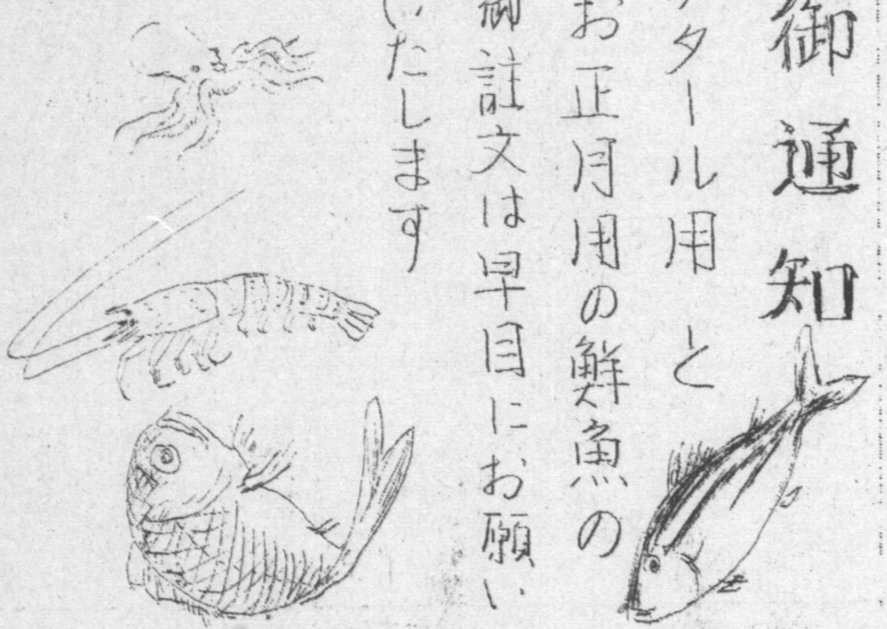 御通知
タール用と
お正月用の鮮魚の
御註文は早目にお願い
いたします